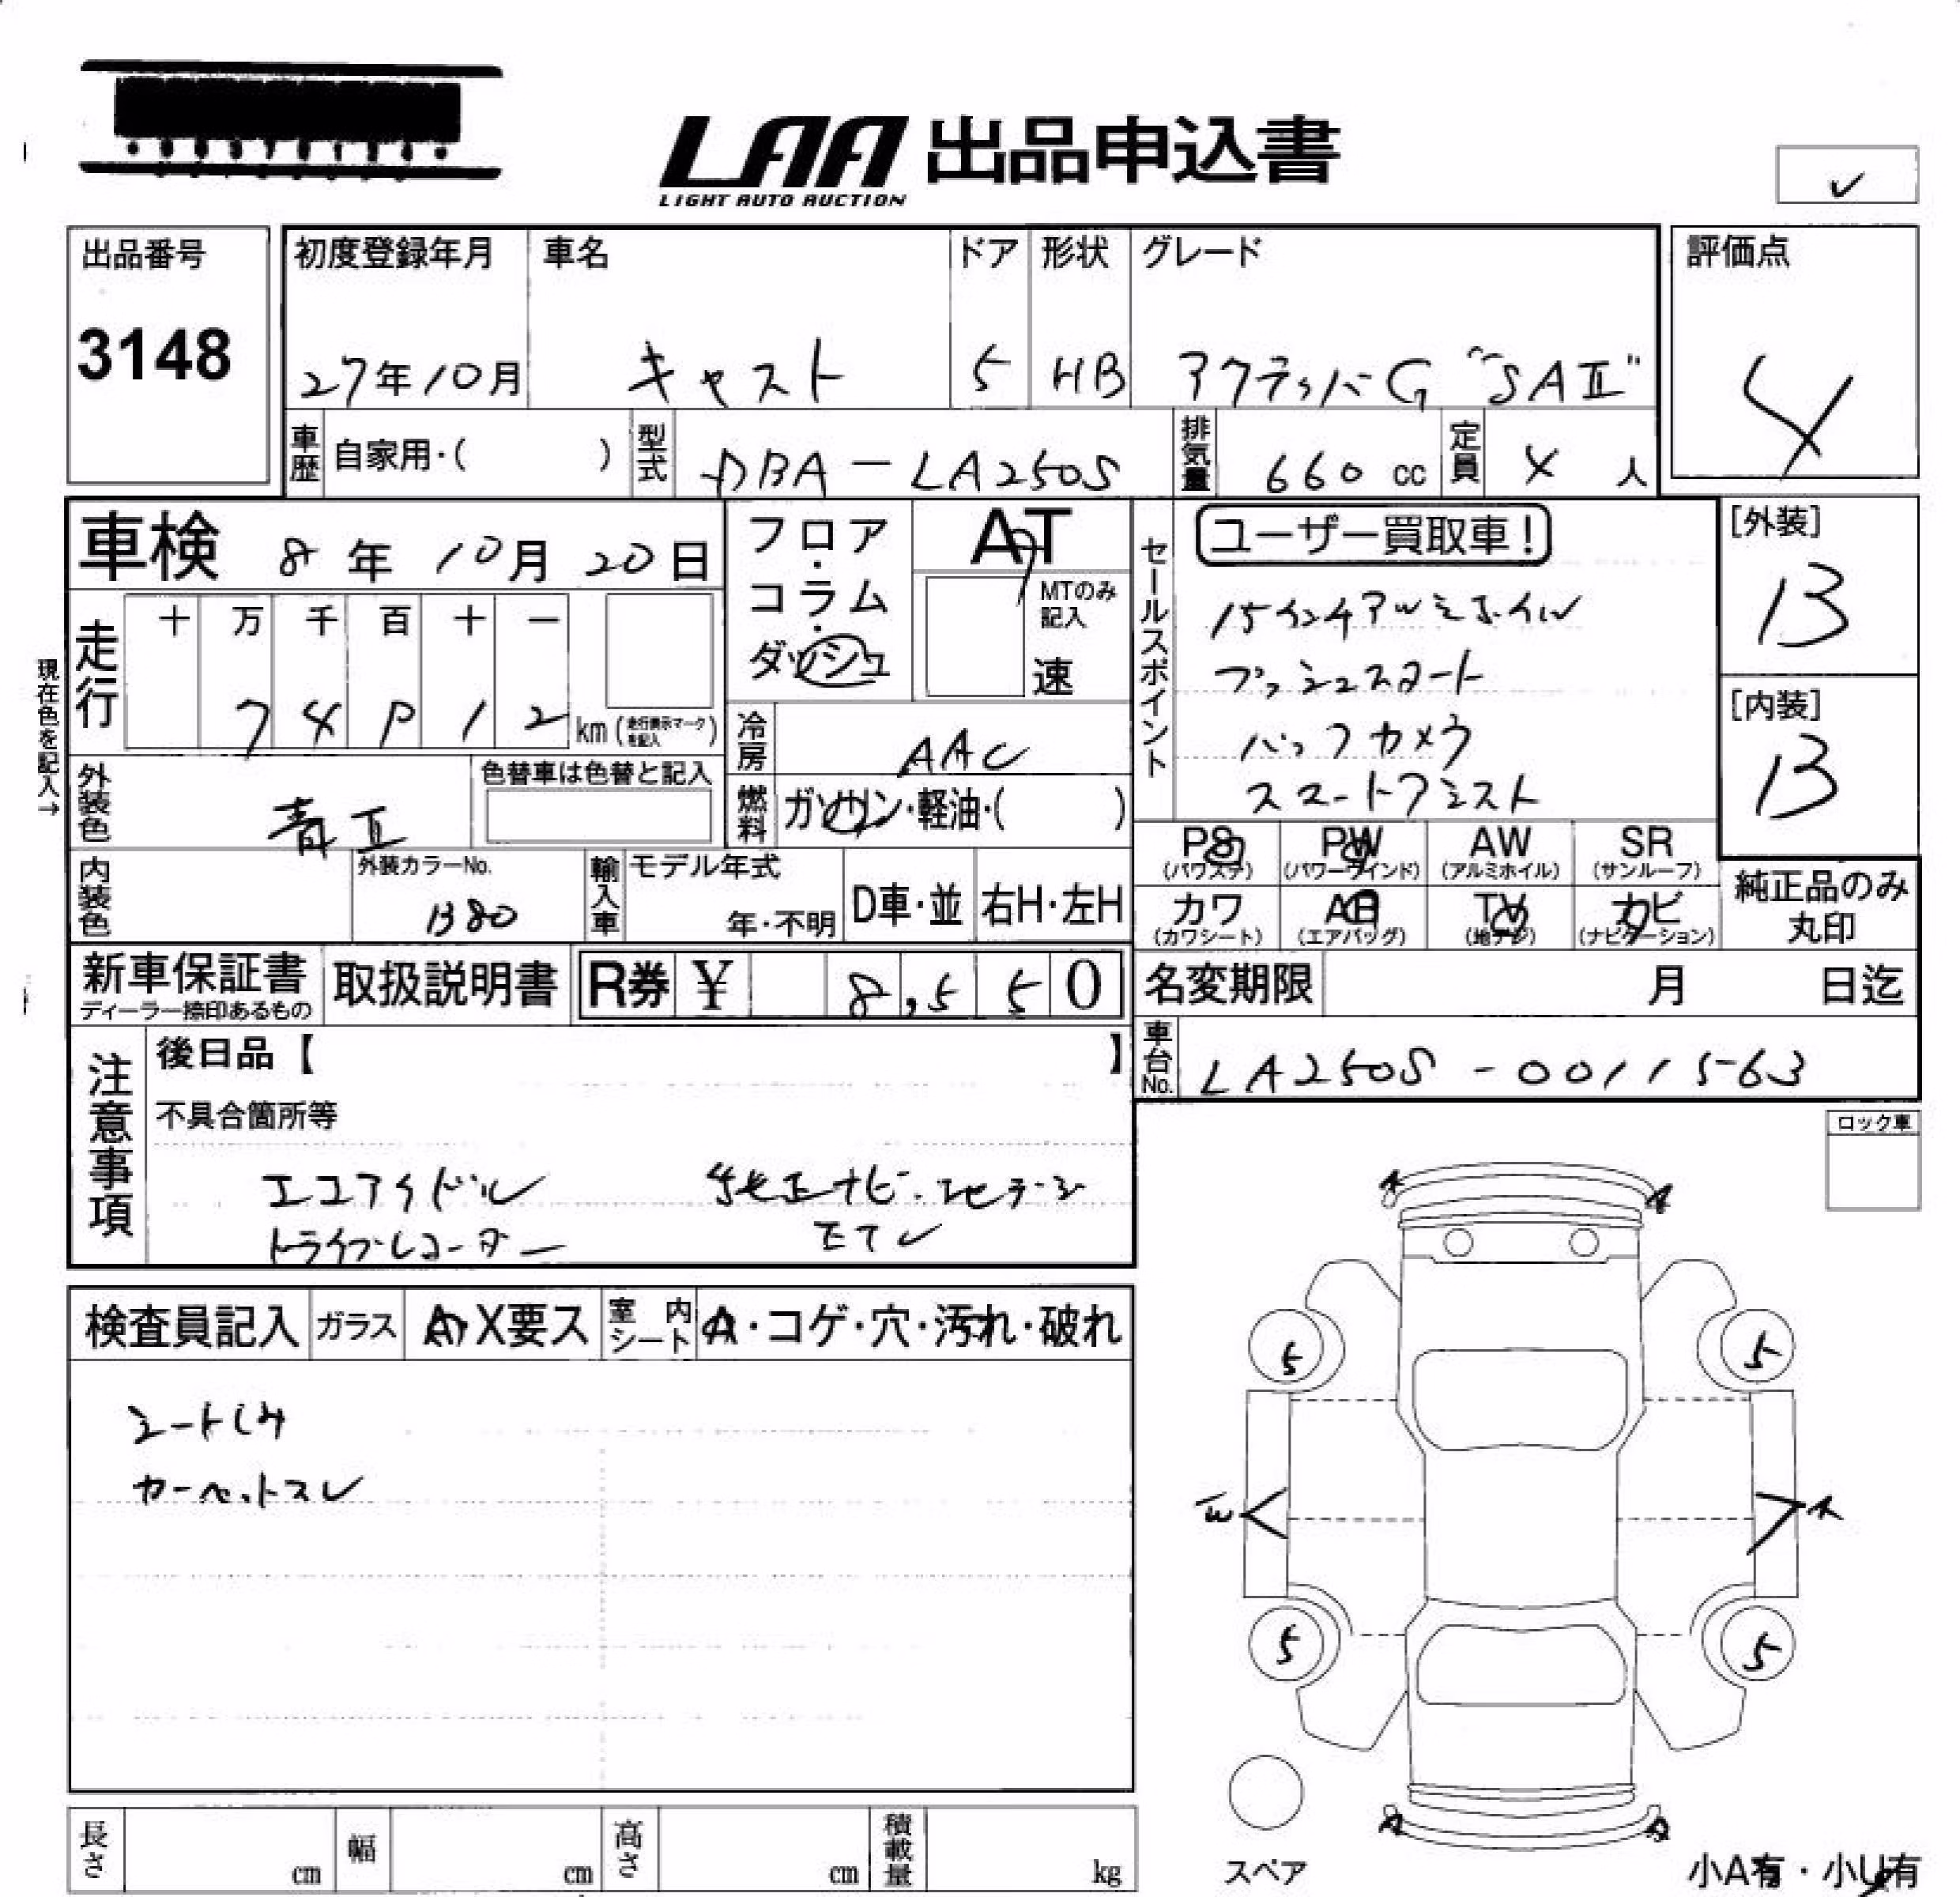 LAA 出品申込書
LIGHT AUTO AUCTION
✓
出品番号
3148
初度登録年月
27年10月
車名
キャスト
ドア
5
形状
HB
グレード
アクティバG "SAⅡ"
評価点
4
車歴 自家用・( )
型式 DBA-LA250S
排気量 660 cc
定員 4 人
車検 8年10月20日
フロア・コラム・ダッシュ
AT
MTのみ記入
速
セールスポイント
ユーザー買取車!
15インチアルミホイル
プッシュスタート
バックカメラ
スマートアシスト
[外装]
B
[内装]
B
現在色を記入→
走行
十 万 千 百 十 一
7 4 8 1 2 km (走行表示マークを記入)
冷房 AAC
外装色 青
色替車は色替と記入
燃料 ガソリン・軽油・( )
PS (パワステ)
PW (パワーウインド)
AW (アルミホイル)
SR (サンルーフ)
カワ (カワシート)
AB (エアバッグ)
TV (地デジ)
ナビ (ナビゲーション)
純正品のみ丸印
内装色
外装カラーNo.
B80
輸入車
モデル年式
年・不明
D車・並
右H・左H
新車保証書
ディーラー捺印あるもの
取扱説明書
R券 ¥ 8,550
名変期限 月 日迄
車台No. LA250S-0011563
注意事項
後日品【 】
不具合箇所等
エコアイドル 純正ナビ・地デジ
ドライブレコーダー ETC
ロック車
検査員記入
ガラス A・X要ス
室内シート A・コゲ・穴・汚れ・破れ
シートしみ
カーペットスレ
A A
5 5
W A
5 5
A A
スペア
小A有・小U有
長さ cm
幅 cm
高さ cm
積載量 kg